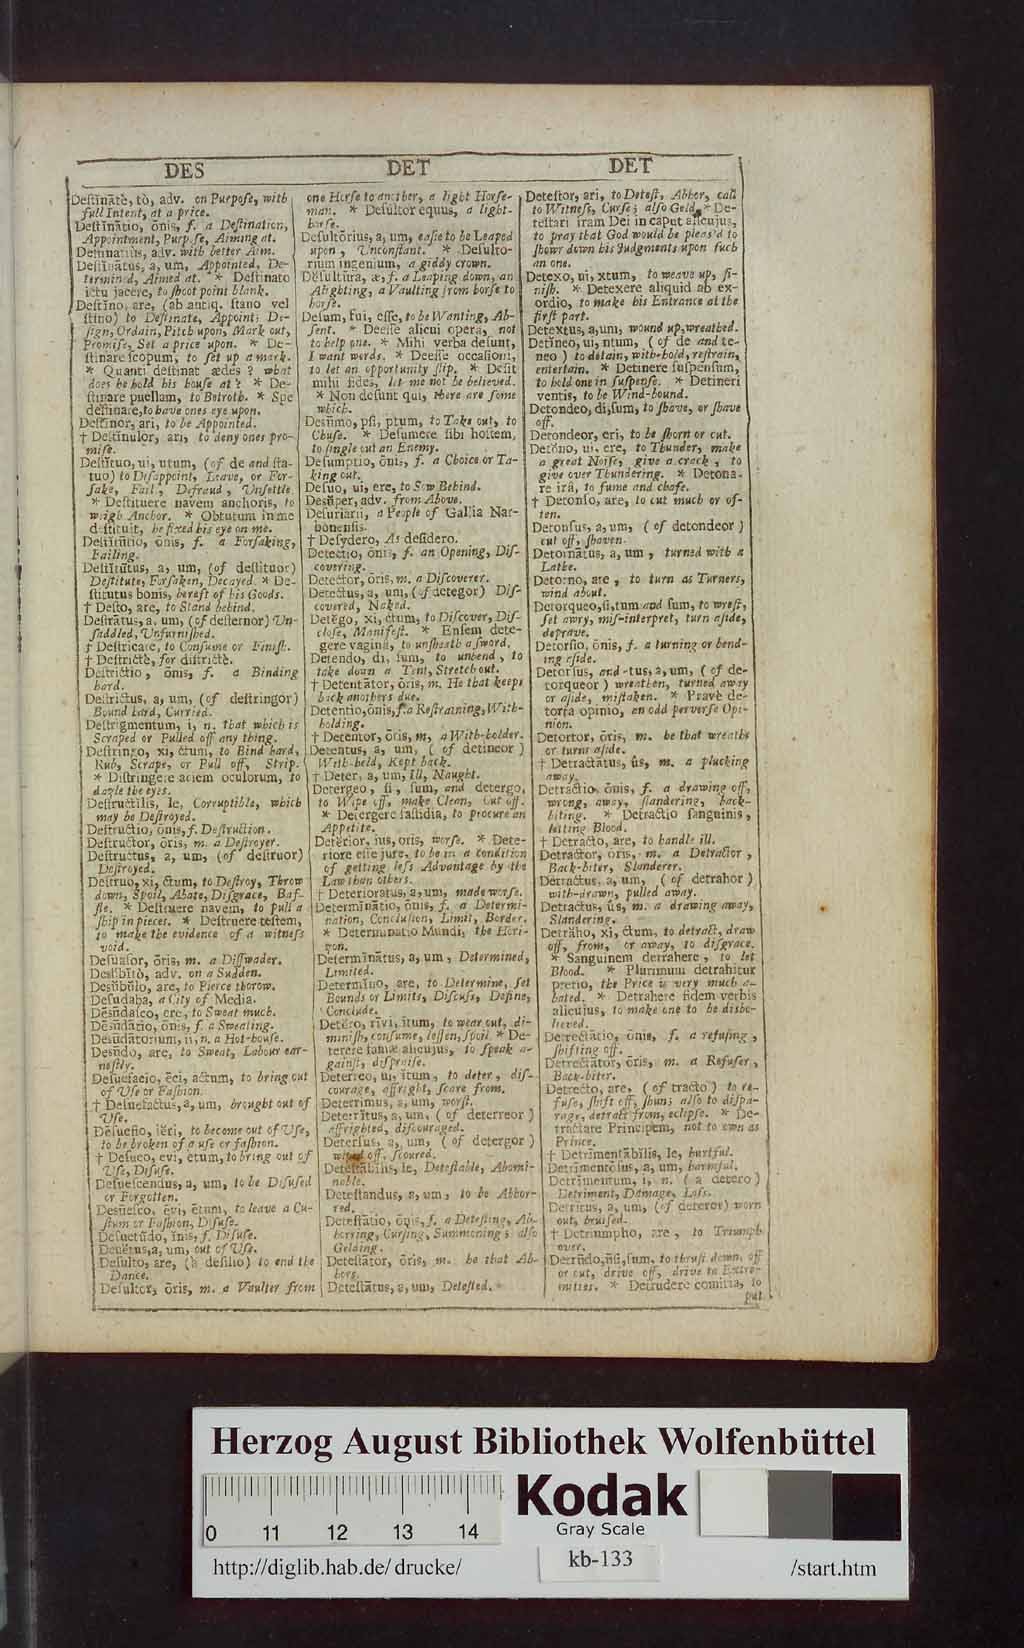 DES
DET
DET
Deſtĭnātè, tò, adv. on Purpoſe, with
full Intent, at a price.
Deſtĭnātio, ōnis, f. a Deſtination,
Appointment, Purpoſe, Aiming at.
Deſtinatius, adv. with better Aim.
Deſtĭnātus, a, um, Appointed, De-
termined, Aimed at. * Deſtinato
ictu jacere, to ſhoot point blank.
Deſtĭno, are, (ab antiq. ſtano vel
ſtino) to Deſtinate, Appoint, De-
ſign, Ordain, Pitch upon, Mark out,
Promiſe, Set a price upon. * De-
ſtinare ſcopum, to ſet up a mark.
* Quanti deſtinat ædes? what
does he hold his houſe at? * De-
ſtinare puellam, to Betroth. * Spe
deſtinare, to have ones eye upon.
Deſtĭnor, ari, to be Appointed.
† Deſtĭnulor, ari, to deny ones pro-
miſe.
Deſtĭtuo, ui, utum, (of de and ſta-
tuo) to Diſappoint, Leave, or For-
ſake, Fail, Defraud, Unſettle.
* Deſtituere navem anchoris, to
weigh Anchor. * Obtutum in me
deſtituit, he fixed his eye on me.
Deſtĭtūtio, ōnis, f. a Forſaking,
Failing.
Deſtĭtūtus, a, um, (of deſtituor)
Deſtitute, Forſaken, Decayed. * De-
ſtitutus bonis, bereft of his Goods.
† Deſto, are, to Stand behind.
Deſtrātus, a, um, (of deſternor) Un-
ſaddled, Unfurniſhed.
† Deſtricare, to Conſume or Finiſh.
† Deſtrictè, for diſtrictè.
Deſtrictio, ōnis, f. a Binding
hard.
Deſtrictus, a, um, (of deſtringor)
Bound hard, Curried.
Deſtrigmentum, i, n. that which is
Scraped or Pulled off any thing.
Deſtringo, xi, ctum, to Bind hard,
Rub, Scrape, or Pull off, Strip.
* Diſtringere aciem oculorum, to
dazle the eyes.
Deſtructĭlis, le, Corruptible, which
may be Deſtroyed.
Deſtructio, ōnis, f. Deſtruction.
Deſtructor, ōris, m. a Deſtroyer.
Deſtructus, a, um, (of deſtruor)
Deſtroyed.
Deſtruo, xi, ctum, to Deſtroy, Throw
down, Spoil, Abate, Diſgrace, Baf-
fle. * Deſtruere navem, to pull a
ſhip in pieces. * Deſtruere teſtem,
to make the evidence of a witneſs
void.
Deſuaſor, ōris, m. a Diſſwader.
Deſŭbĭtò, adv. on a Sudden.
Deſŭbŭlo, are, to Pierce thorow.
Deſudaba, a City of Media.
Dēſūdaſco, ere, to Sweat much.
Dēſūdātio, ōnis, f. a Sweating.
Deſudatorium, ii, n. a Hot-houſe.
Deſūdo, are, to Sweat, Labour ear-
neſtly.
Deſuefacio, ēci, actum, to bring out
of Uſe or Faſhion.
† Deſuefactus, a, um, brought out of
Uſe.
Dēſuefio, iĕri, to become out of Uſe,
to be broken of a uſe or faſhion.
† Deſueo, evi, ētum, to bring out of
Uſe, Diſuſe.
Deſueſcendus, a, um, to be Diſuſed
or Forgotten.
Deſueſco, ēvi, ētum, to leave a Cu-
ſtom or Faſhion, Diſuſe.
Deſuetūdo, ĭnis, f. Diſuſe.
Deſuētus, a, um, out of Uſe.
Deſulto, are, (à deſilio) to end the
Dance.
Deſultor, ōris, m. a Vaulter from
one Horſe to another, a light Horſe-
man. * Deſultor equus, a light-
horſe.
Deſultōrius, a, um, eaſie to be Leaped
upon, Unconſtant. * Deſulto-
rium ingenium, a giddy crown.
Dēſultūra, æ, f. a Leaping down, an
Alighting, a Vaulting from horſe to
horſe.
Deſum, fui, eſſe, to be Wanting, Ab-
ſent. * Deeſſe alicui opera, not
to help one. * Mihi verba deſunt,
I want words. * Deeſſe occaſioni,
to let an opportunity ſlip. * Deſit
mihi fides, let me not be believed.
* Non deſunt qui, there are ſome
which.
Deſūmo, pſi, ptum, to Take out, to
Chuſe. * Deſumere ſibi hoſtem,
to ſingle out an Enemy.
Deſumptio, ōnis, f. a Choice or Ta-
king out.
Deſuo, ui, ere, to Sow Behind.
Deſŭper, adv. from Above.
Deſuriarii, a People of Gallia Nar-
bonenſis.
† Deſydero, As deſidero.
Detectio, ōnis, f. an Opening, Diſ-
covering.
Detector, ōris, m. a Diſcoverer.
Detectus, a, um, (of detegor) Diſ-
covered, Naked.
Detĕgo, xi, ctum, to Diſcover, Diſ-
cloſe, Manifeſt. * Enſem dete-
gere vaginā, to unſheath a ſword.
Detendo, di, ſum, to unbend, to
take down a Tent, Stretch out.
† Detentātor, ōris, m. He that keeps
back anothers due.
Detentio, ōnis, f. a Reſtraining, With-
holding.
† Detentor, ōris, m, a With-holder.
Detentus, a, um, (of detineor)
With-held, Kept back.
† Deter, a, um, Ill, Naught.
Detergeo, ſi, ſum, and detergo,
to Wipe off, make Clean, Cut off.
* Detergere faſtidia, to procure an
Appetite.
Detĕrior, ius, oris, worſe. * Dete-
riore eſſe jure, to be in a condition
of getting leſs Advantage by the
Law than others.
† Deterioratus, a, um, made worſe.
Determĭnātio, ōnis, f. a Determi-
nation, Concluſion, Limit, Border.
* Determinatio Mundi, the Hori-
zon.
Determĭnātus, a, um, Determined,
Limited.
Determĭno, are, to Determine, ſet
Bounds or Limits, Diſcuſs, Define,
Conclude.
Detĕro, rīvi, ītum, to wear out, di-
miniſh, conſume, leſſen, ſpoil. * De-
terere famæ alicujus, to ſpeak a-
gainſt, diſpraiſe.
Deterreo, ui, itum, to deter, diſ-
courage, affright, ſcare from.
Deterrimus, a, um, worſt.
Deterrĭtus, a, um, (of deterreor)
affrighted, diſcouraged.
Deterſus, a, um, (of detergor)
wiped off, ſcoured.
Deteſtābĭlis, le, Deteſtable, Abomi-
nable.
Deteſtandus, a, um, to be Abhor-
red.
Deteſtātio, ōnis, f. a Deteſting, Ab-
horring, Curſing, Summoning; alſo
Gelding.
Deteſtātor, ōris, m. he that Ab-
hors.
Deteſtātus, a, um, Deteſted.
Deteſtor, ari, to Deteſt, Abhor, call
to Witneſs, Curſe; alſo Geld. * De-
teſtari iram Dei in caput alicujus,
to pray that God would be pleas'd to
ſhowr down his Judgments upon ſuch
an one.
Detexo, ui, xtum, to weave up, fi-
niſh. * Detexere aliquid ab ex-
ordio, to make his Entrance at the
firſt part.
Detextus, a, um, wound up, wreathed.
Detĭneo, ui, ntum, (of de and te-
neo) to detain, with-hold, reſtrain,
entertain. * Detinere ſuſpenſum,
to hold one in ſuſpenſe. * Detineri
ventis, to be Wind-bound.
Detondeo, di, ſum, to ſhave, or ſhave
off.
Detondeor, eri, to be ſhorn or cut.
Detŏno, ui, ere, to Thunder, make
a great Noiſe, give a crack, to
give over Thundering. * Detona-
re irā, to fume and chafe.
† Detonſo, are, to cut much or of-
ten.
Detonſus, a, um, (of detondeor)
cut off, ſhaven.
Detornātus, a, um, turned with a
Lathe.
Detorno, are, to turn as Turners,
wind about.
Detorqueo, ſi, tum and ſum, to wreſt,
ſet awry, miſ-interpret, turn aſide,
deprave.
Detorſio, ōnis, f. a turning or bend-
ing aſide.
Detorſus, and -tus, a, um, (of de-
torqueor) wreathen, turned away
or aſide, miſtaken. * Pravè de-
torta opinio, an odd perverſe Opi-
nion.
Detortor, ōris, m. he that wreaths
or turns aſide.
† Detractātus, ûs, m. a plucking
away.
Detractio, ōnis, f. a drawing off,
wrong, away, ſlandering, back-
biting. * Detractio ſanguinis,
letting Blood.
† Detracto, are, to handle ill.
Detractor, ōris, m. a Detractor,
Back-biter, Slanderer.
Detractus, a, um, (of detrahor)
with-drawn, pulled away.
Detractus, ûs, m. a drawing away,
Slandering.
Detrăho, xi, ctum, to detract, draw
off, from, or away, to diſgrace.
* Sanguinem detrahere, to let
Blood. * Plurimum detrahitur
pretio, the Price is very much a-
bated. * Detrahere fidem verbis
alicujus, to make one to be disbe-
lieved.
Detrectātio, ōnis, f. a refuſing,
ſhifting off.
Detrectātor, ōris, m. a Refuſer,
Back-biter.
Detrecto, are, (of tracto) to re-
fuſe, ſhift off, ſhun; alſo to diſpa-
rage, detract from, eclipſe. * De-
trectare Principem, not to own as
Prince.
† Detrīmentābĭlis, le, hurtful.
Detrīmentōſus, a, um, harmful.
Detrīmentum, i, n. (a detero)
Detriment, Damage, Loſs.
Detritus, a, um, (of deteror) worn
out, bruiſed.
† Detriumpho, are, to Triumph
over.
Detrūdo, ūſi, ſum, to thruſt down, off
or out, drive off, drive to Extre-
mities. * Detrudere comitia, to
put
Herzog August Bibliothek Wolfenbüttel
0 11 12 13 14
Kodak
Gray Scale
kb-133
http://diglib.hab.de/drucke/
/start.htm